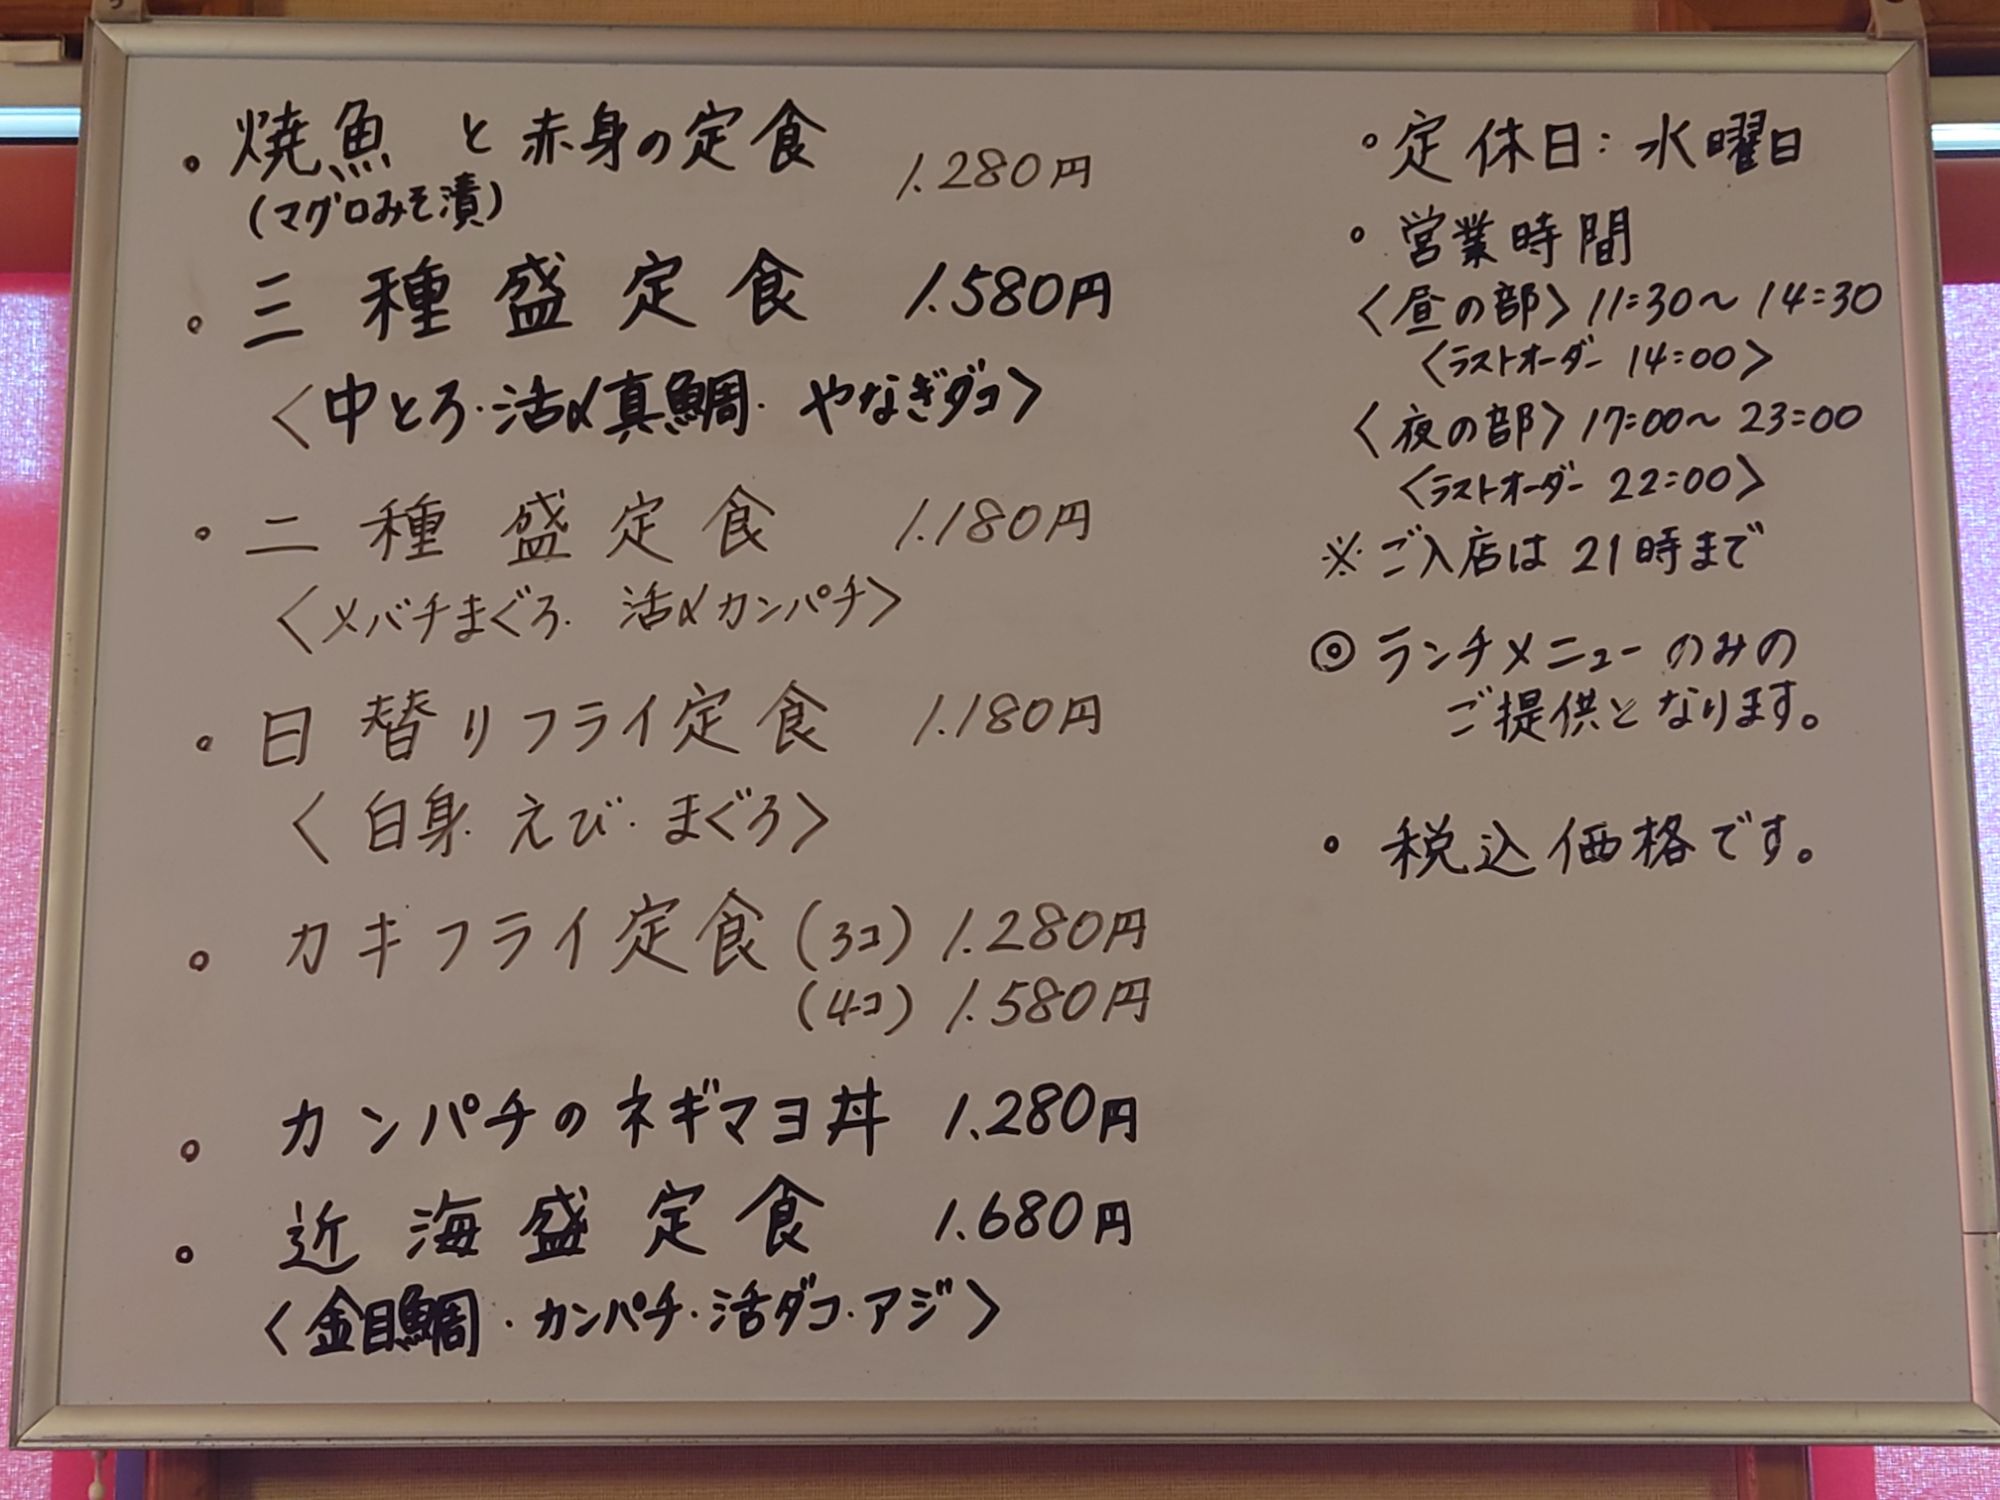 ・焼魚 と 赤身の定食 1.280円
(マグロみそ漬)
・三種盛定食 1.580円
〈中とろ・活〆真鯛・やなぎダコ〉
・二種盛定食 1.180円
〈メバチまぐろ. 活〆カンパチ〉
・日替りフライ定食 1.180円
〈白身. えび・まぐろ〉
・カキフライ定食 (3コ) 1.280円
(4コ) 1.580円
・カンパチのネギマヨ丼 1.280円
・近海盛定食 1.680円
〈金目鯛・カンパチ・活ダコ・アジ〉
・定休日: 水曜日
・営業時間
〈昼の部〉11:30〜14:30
〈ラストオーダー 14:00〉
〈夜の部〉17:00〜23:00
〈ラストオーダー 22:00〉
※ご入店は 21時まで
◎ランチメニューのみの
ご提供となります。
・税込価格です。